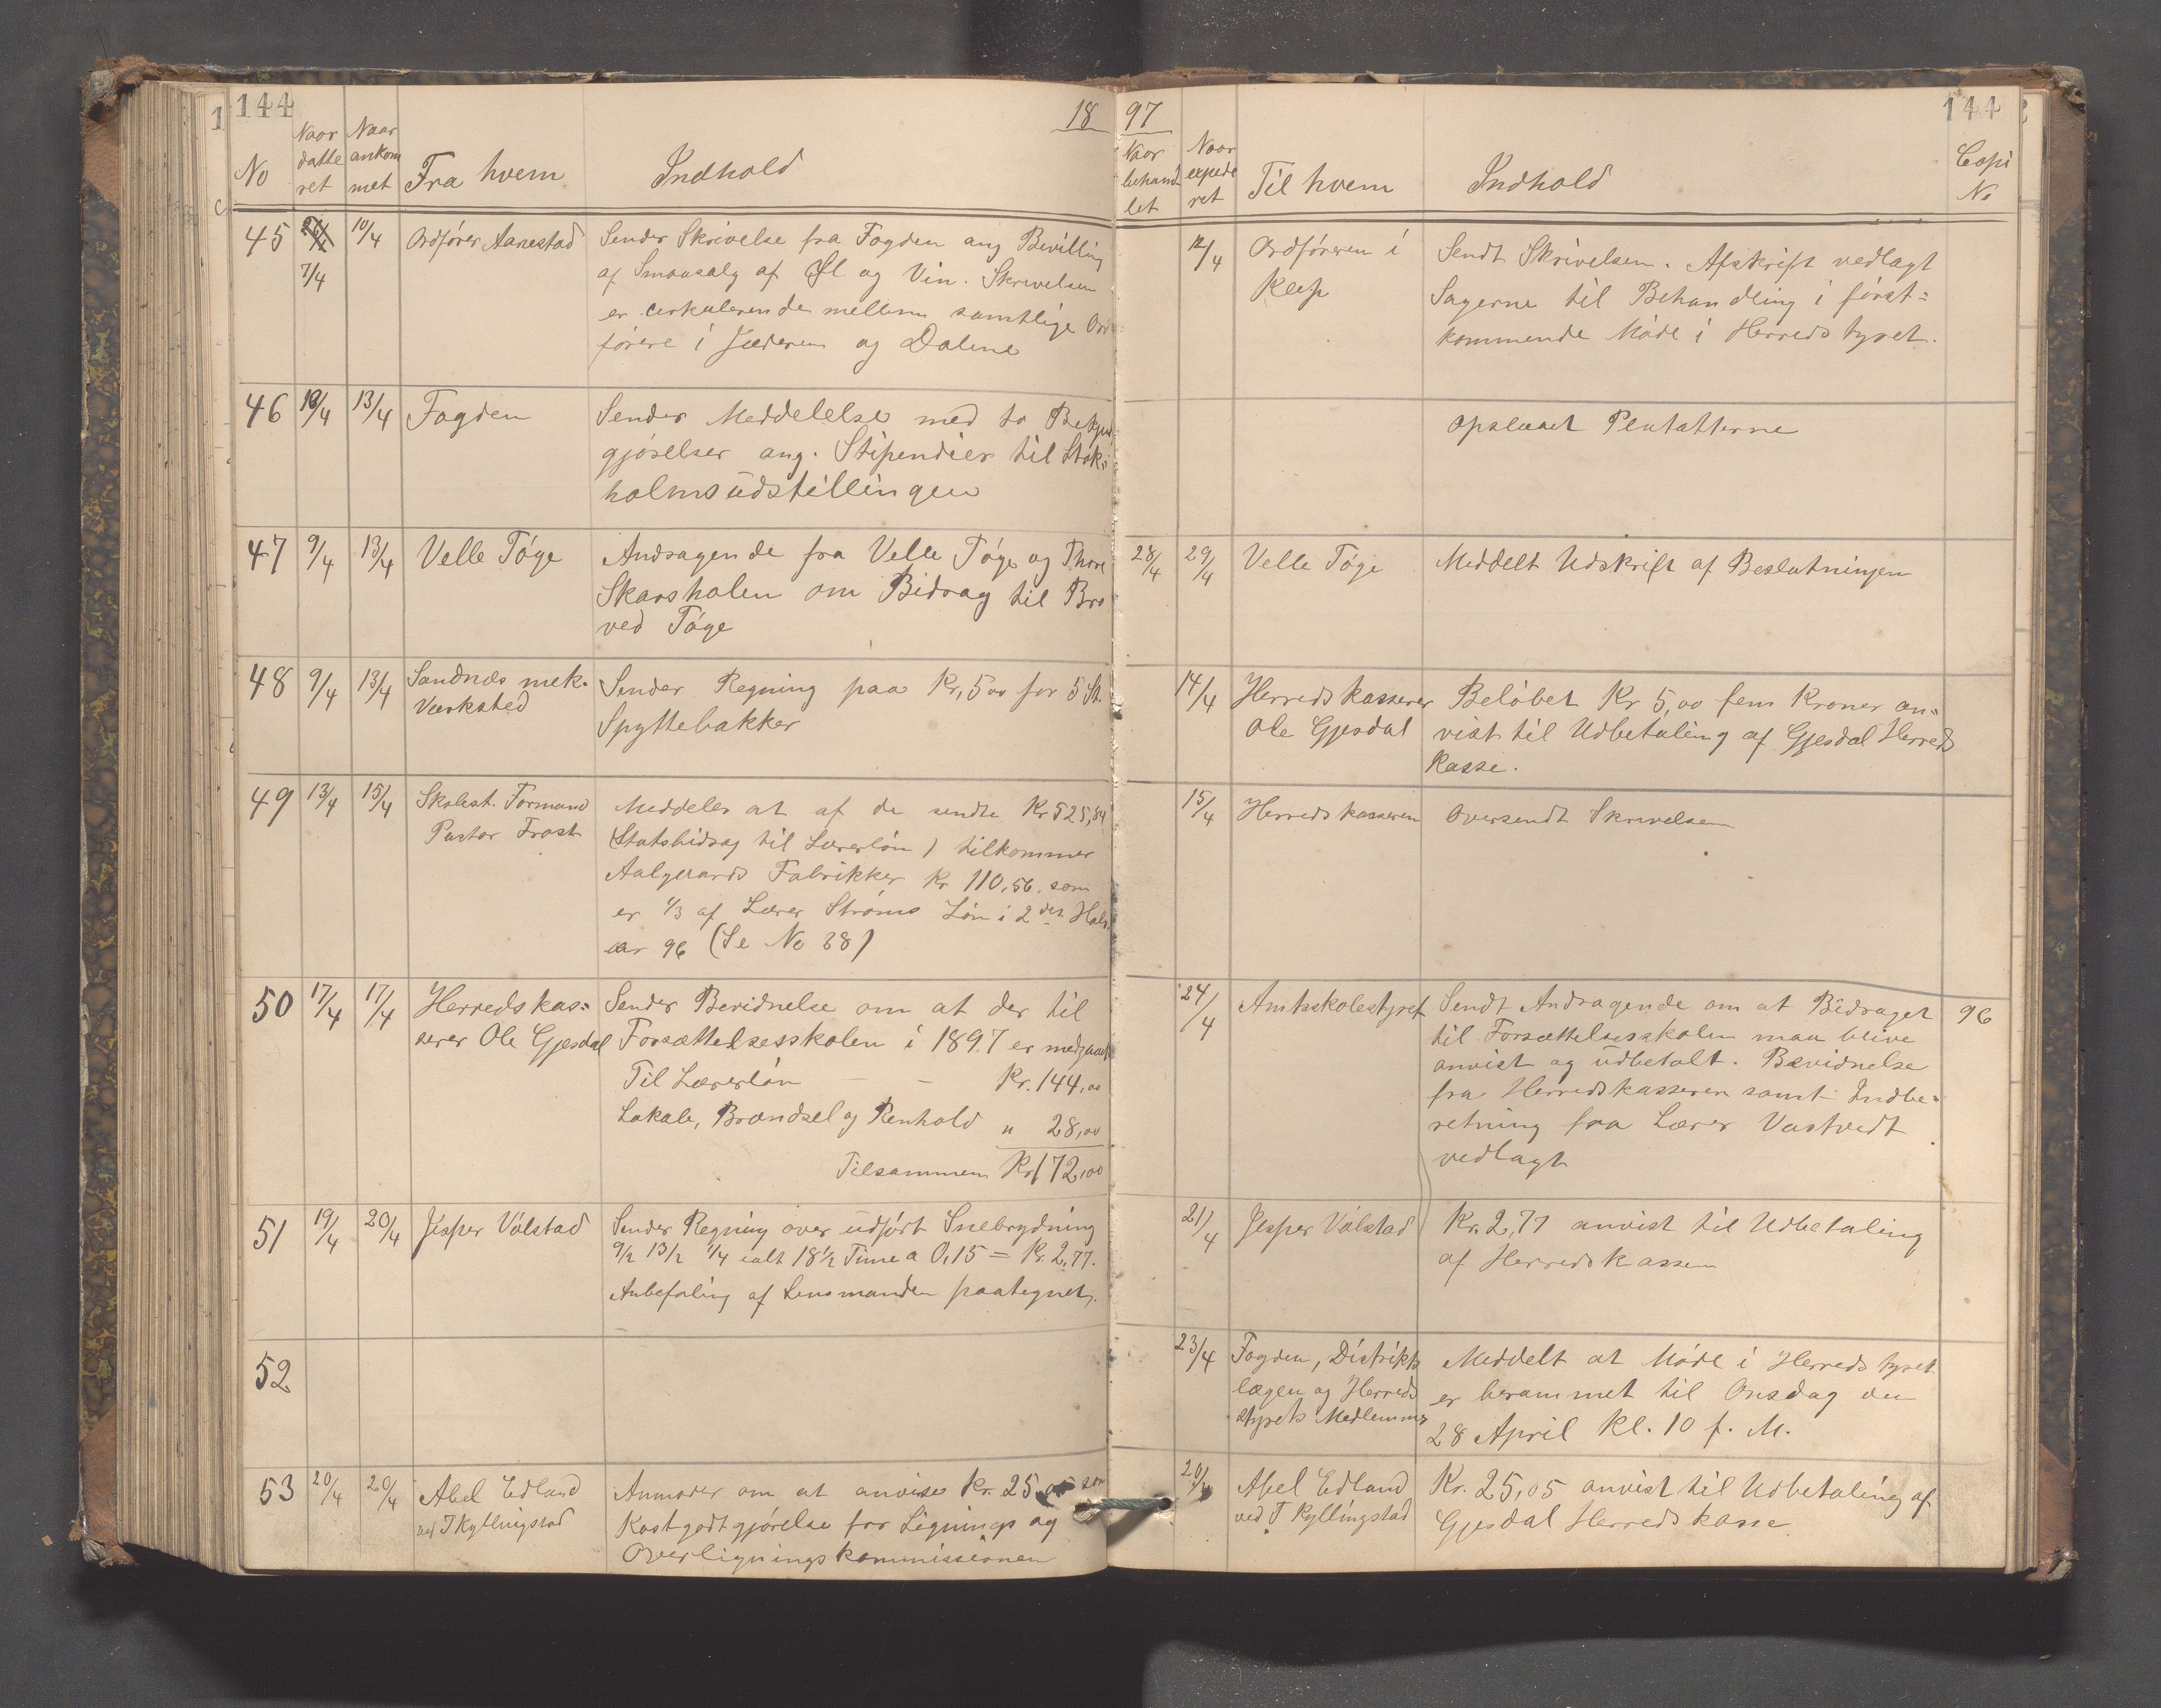 144
18 97
144
No
Naar datteret
Naar ankommet
Fra hvem
Indhold
Naar behandlet
Naar expederet
Til hvem
Indhold
Copi No
45
7/4
10/4
Ordfører Aanestad
Sender Skrivelse fra Fogden ang Bevilling
af Smaasalg af Øl og Vin. Skrivelsen
er cirkulerende mellem samtlige Ord
førere i Jæderen og Dalene
12/4
Ordføreren i
Klep
Sendt Skrivelsen. Afskrift vedlagt
Sagerne til Behandling i først=
kommende Møde i Herredstyret.
46
10/4
13/4
Fogden
Sender Meddelelse med to Bekjendt
gjørelser ang. Stipendier til Stok=
holmsudstillingen
opslaaet Plakatterne
47
9/4
13/4
Velle Tøge
Andragende fra Velle Tøge og Thore
Skarsholen om Bidrag til Bro
ved Tøge
28/4
29/4
Velle Tøge
Meddelt Udskrift af Beslutningen
48
9/4
13/4
Sandnæs mek.
Værksted
Sender Regning paa Kr. 5,00 for 5 St.
Spyttebakker
14/4
Herredskasserer
Ole Gjesdal
Beløbet Kr 5,00 fem Kroner an=
vist til Udbetaling af Gjesdal Herreds
Kasse.
49
13/4
15/4
Skolest. Formand
Pastor Frost
Meddeler at af de sendte Kr 525,84
(Statsbidrag til Lærerløn) tilkommer
Aalgaards Fabrikker Kr 110,56. som
er 1/3 af Lærer Strøms Løn i 2det Halv
aar 96 (Se No 38)
15/4
Herredskasseren
Oversendt Skrivelsen
50
17/4
17/4
Herredskas=
serer Ole Gjesdal
Sender Bevidnelse om at der til
Forsættelsesskolen i 1897 er medgaaet
Til Lærerløn - - Kr. 144,00
Lokale, Brændsel og Renhold " 28,00
Tilsammen Kr 172,00
24/4
Amtsskolestyret
Sendt Andragende om at Bidraget
til Forsættelsesskolen maa blive
anvist og udbetalt. Bevidnelse
fra Herredskasseren samt Indbe=
retning fra Lærer Vastvedt
vedlagt
96
51
19/4
20/4
Jesper Volstad
Sender Regning over udført Snebrydning
9/2 13/2 1/4 ialt 18 1/2 Time a 0,15 = Kr. 2,77.
Anbefaling af Lensmanden paategnet.
21/4
Jesper Volstad
Kr. 2,77 anvist til Udbetaling
af Herredskassen
52
23/4
Fogden, Distrikts
lægen og Herreds
styrets Medlemmer
Meddelt at Møde i Herredstyret
er berammet til Onsdag den
28 April Kl. 10 f. M.
53
20/4
20/4
Abel Edland
ved T Kyllingstad
Anmoder om at anvise Kr. 25,05 som
Kostgodtgjørelse for Lignings og
Overligningskommissionen
20/4
Abel Edland
ved T Kyllingstad
Kr. 25,05 anvist til Udbetaling af
Gjesdal Herredskasse